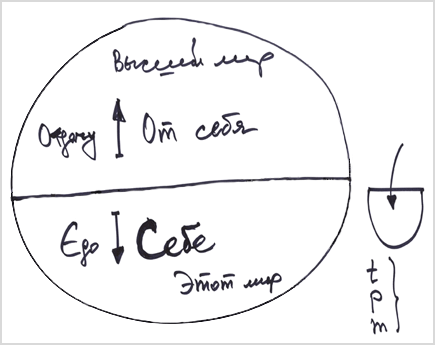 Высший мир
Отдачу От себя
Эго Себе
Этот мир
t
p
m